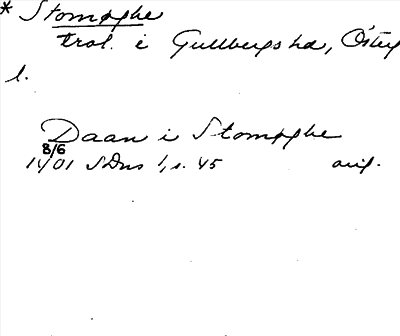 * Stomphe
trol. i Gullbergs hd, Östg
l.
Daan i Stomphe
8/6
1401 SDns 1, s. 45 orig.